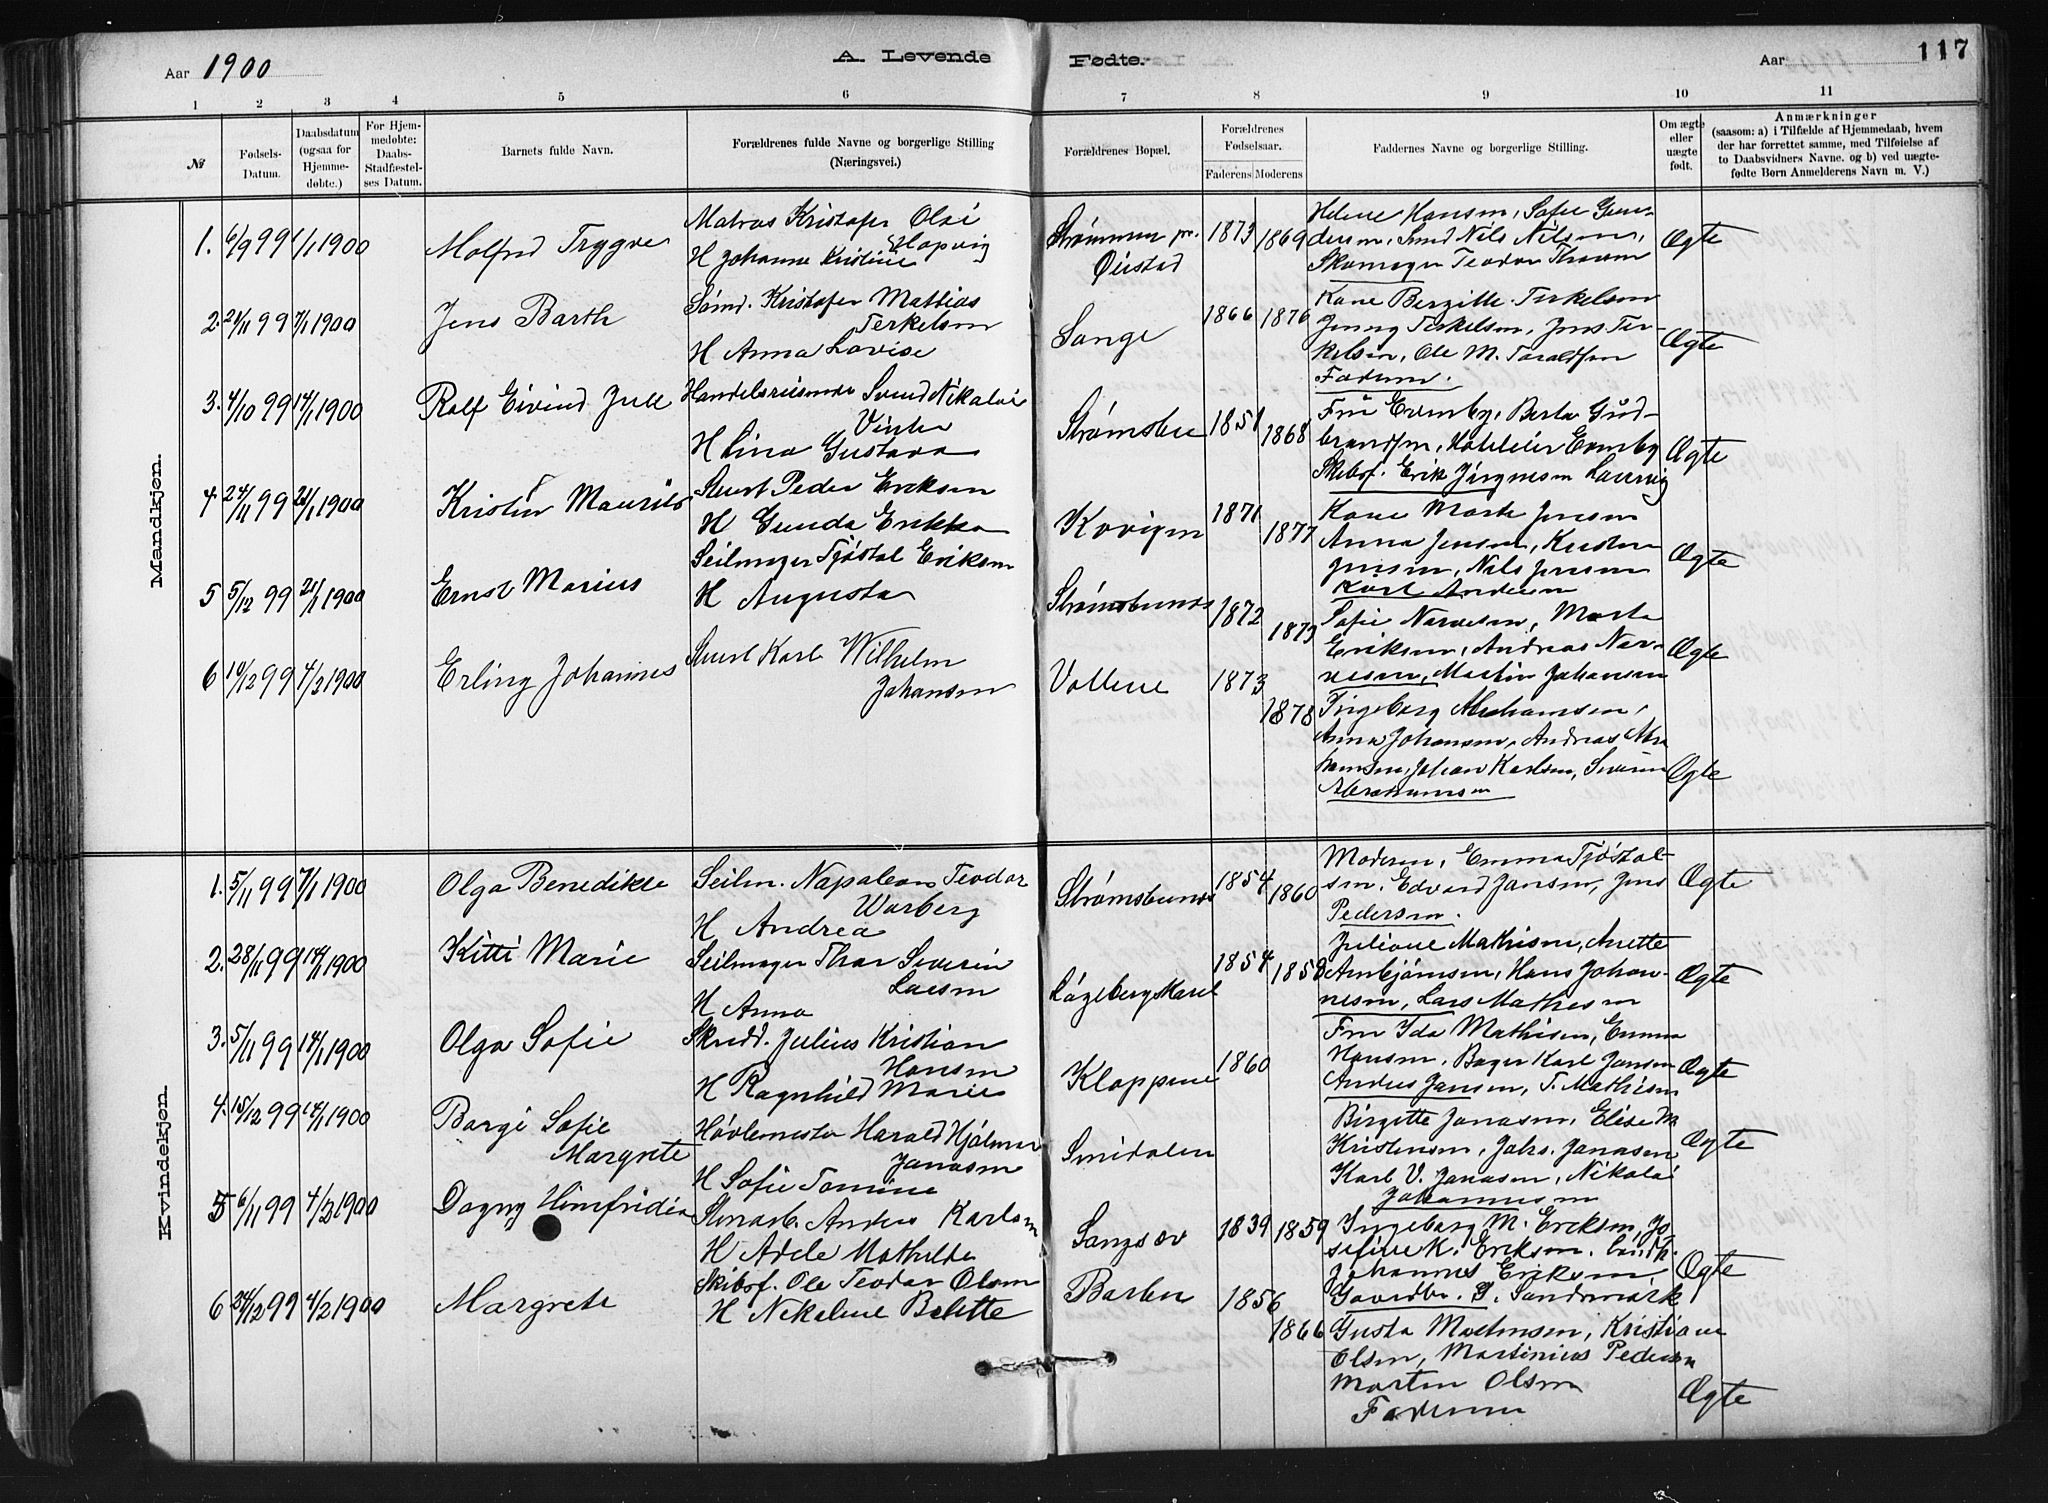 Aar 1900
A. Levende Fødte.
Aar
117
1 2 3 4 5 6 7 8 9 10 11
№
Fødsels-Datum.
Daabsdatum (ogsaa for Hjemme-døbte.)
For Hjem-medøbte: Daabs-Stadfæstel-ses Datum.
Barnets fulde Navn.
Forældrenes fulde Navne og borgerlige Stilling (Næringsvei.)
Forældrenes Bopæl.
Forældrenes Fødselsaar.
Faderens Moderens
Faddernes Navne og borgerlige Stilling.
Om ægte eller uægte født.
Anmærkninger
(saasom: a) i Tilfælde af Hjemmedaab, hvem
der har forrettet samme, med Tilføielse af
to Daabsvidners Navne. og b) ved uægte-
fødte Børn Anmelderens Navn m. V.)
Mandkjøn.
1. 6/9 99 1/1 1900 Molfred Trygve
Matros Kristofer Olai
Hopvig
H Johanne Kristine
Strømmen pr.
Øiestad
1873 1869
Helene Hansen, Sofie Gun-
dersen, Smed Nils Nilsen,
Skomager Teodor Thorsen
Ægte
2. 21/11 99 7/1 1900 Jens Barth
Sømd. Kristofer Mattias
Terkelsen
H Anna Lovise
Songe
1866 1876
Kone Bergitte Terkelsen
Jenny Terkelsen, Jens Ter-
kelsen, Ole M. Taraldsen
Faderen.
Ægte
3. 4/10 99 14/1 1900 Rolf Eivind Juell
Handelsreisende Svend Nikolai
Vinter
H Lina Gustava
Strømsbu
1851 1868
Fru Evensby, Berta Gud-
brandsen, Hotteleier Evensby
Skibsf. Erik Jørgensen Laurvig
Ægte
4 24/11 99 21/1 1900 Kristen Mauritz
Stuert Peder Eriksen
H Gunda Erikka
Kovigen
1871 1877
Kone Marte Jensen
Anna Jensen, Kristen
Jensen, Nils Jensen
Karl Andersen
Ægte
5 5/12 99 21/1 1900 Ernst Marius
Seilmager Tjøstol Eriksen
H Augusta
Strømsbunes
1872 1873
Sofie Narvesen, Marte
Eriksen, Andreas Nar-
vesen, Martin Johansen
Ægte
6 10/12 99 4/2 1900 Erling Johannes
Stuert Karl Wilhelm
Johansen
Vollene
1873 1878
Ingeborg Abrahamsen,
Anna Johansen, Andreas Abra
hamsen, Johan Karlsen, Severin
Abrahamsen
Ægte
Kvindekjøn.
1. 5/11 99 7/1 1900 Olga Benedikte
Seilm. Napoleon Teodor
Warberg
H Andrea
Strømsbunes
1854 1860
Moderen, Emma Tjøstol-
sen, Edvard Jansen, Jens
Pedersen.
Ægte
2. 28/11 99 14/1 1900 Kitti Marie
Seilmager Thor Severin
Larsen
H Anna
Løgeberg Marel
1854 1858
Juliane Mathisen, Anette
Arnbjørnsen, Hans Johan-
nesen, Lars Mathisen
Ægte
3. 5/11 99 14/1 1900 Olga Sofie
Skredd. Julius Kristian
Hansen
H Ragnhild Marie
Kloppene
1860
Fru Ida Mathisen, Emma
Hansen, Bager Karl Jansen
Anders Jansen, T. Mathisen
Ægte
4. 15/12 99 14/1 1900 Borgi Sofie
Margrete
Høvlemester Harald Hjalmar
Janasen
H Sofie Tomine
Smidalen
Birgitte Janasen, Elise M
Kristensen, Johs. Janasen
Karl V. Janasen, Nikolai
Johannesen
Ægte
5 6/11 99 4/2 1900 Dagny Himfridia
Stenarb. Anders Karlsen
H Adele Mathilde
Sangsæv
1839 1859
Ingeborg M. Eriksen, Jo-
sefine K. Eriksen,
Johannes Eriksen
Gaardbr. S. Sandmark
Ægte
6 24/12 99 4/2 1900 Margrete
Skibsf. Ole Teodor Olsen
H Nikoline Belette
Barbu
1856 1866
Gusta Mortensen, Kristiane
Olsen, Martinius Pedersen
Morten Olsen
Faderen
Ægte